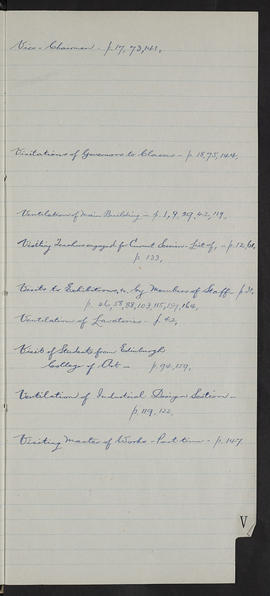 Vice-Chairman - p. 17, 73, 141,
Visitations of Governors to Classes - p. 18, 75, 144.
Ventilation of Main Building - p. 1, 9, 29, 42, 119.
Visiting Teachers engaged for Current Session - List of, - p. 12, 68,
p. 133.
Visits to Exhibitions, &c by Members of Staff - p. 31,
p. 46, 58, 88, 103, 115, 159, 164.
Ventilation of Lavatories - p. 42.
Visit of Students from Edinburgh
College of Art - p. 94, 159.
Ventilation of Industrial Design Section -
p. 119, 122.
Visiting Master of Works - Part time - p. 147
V